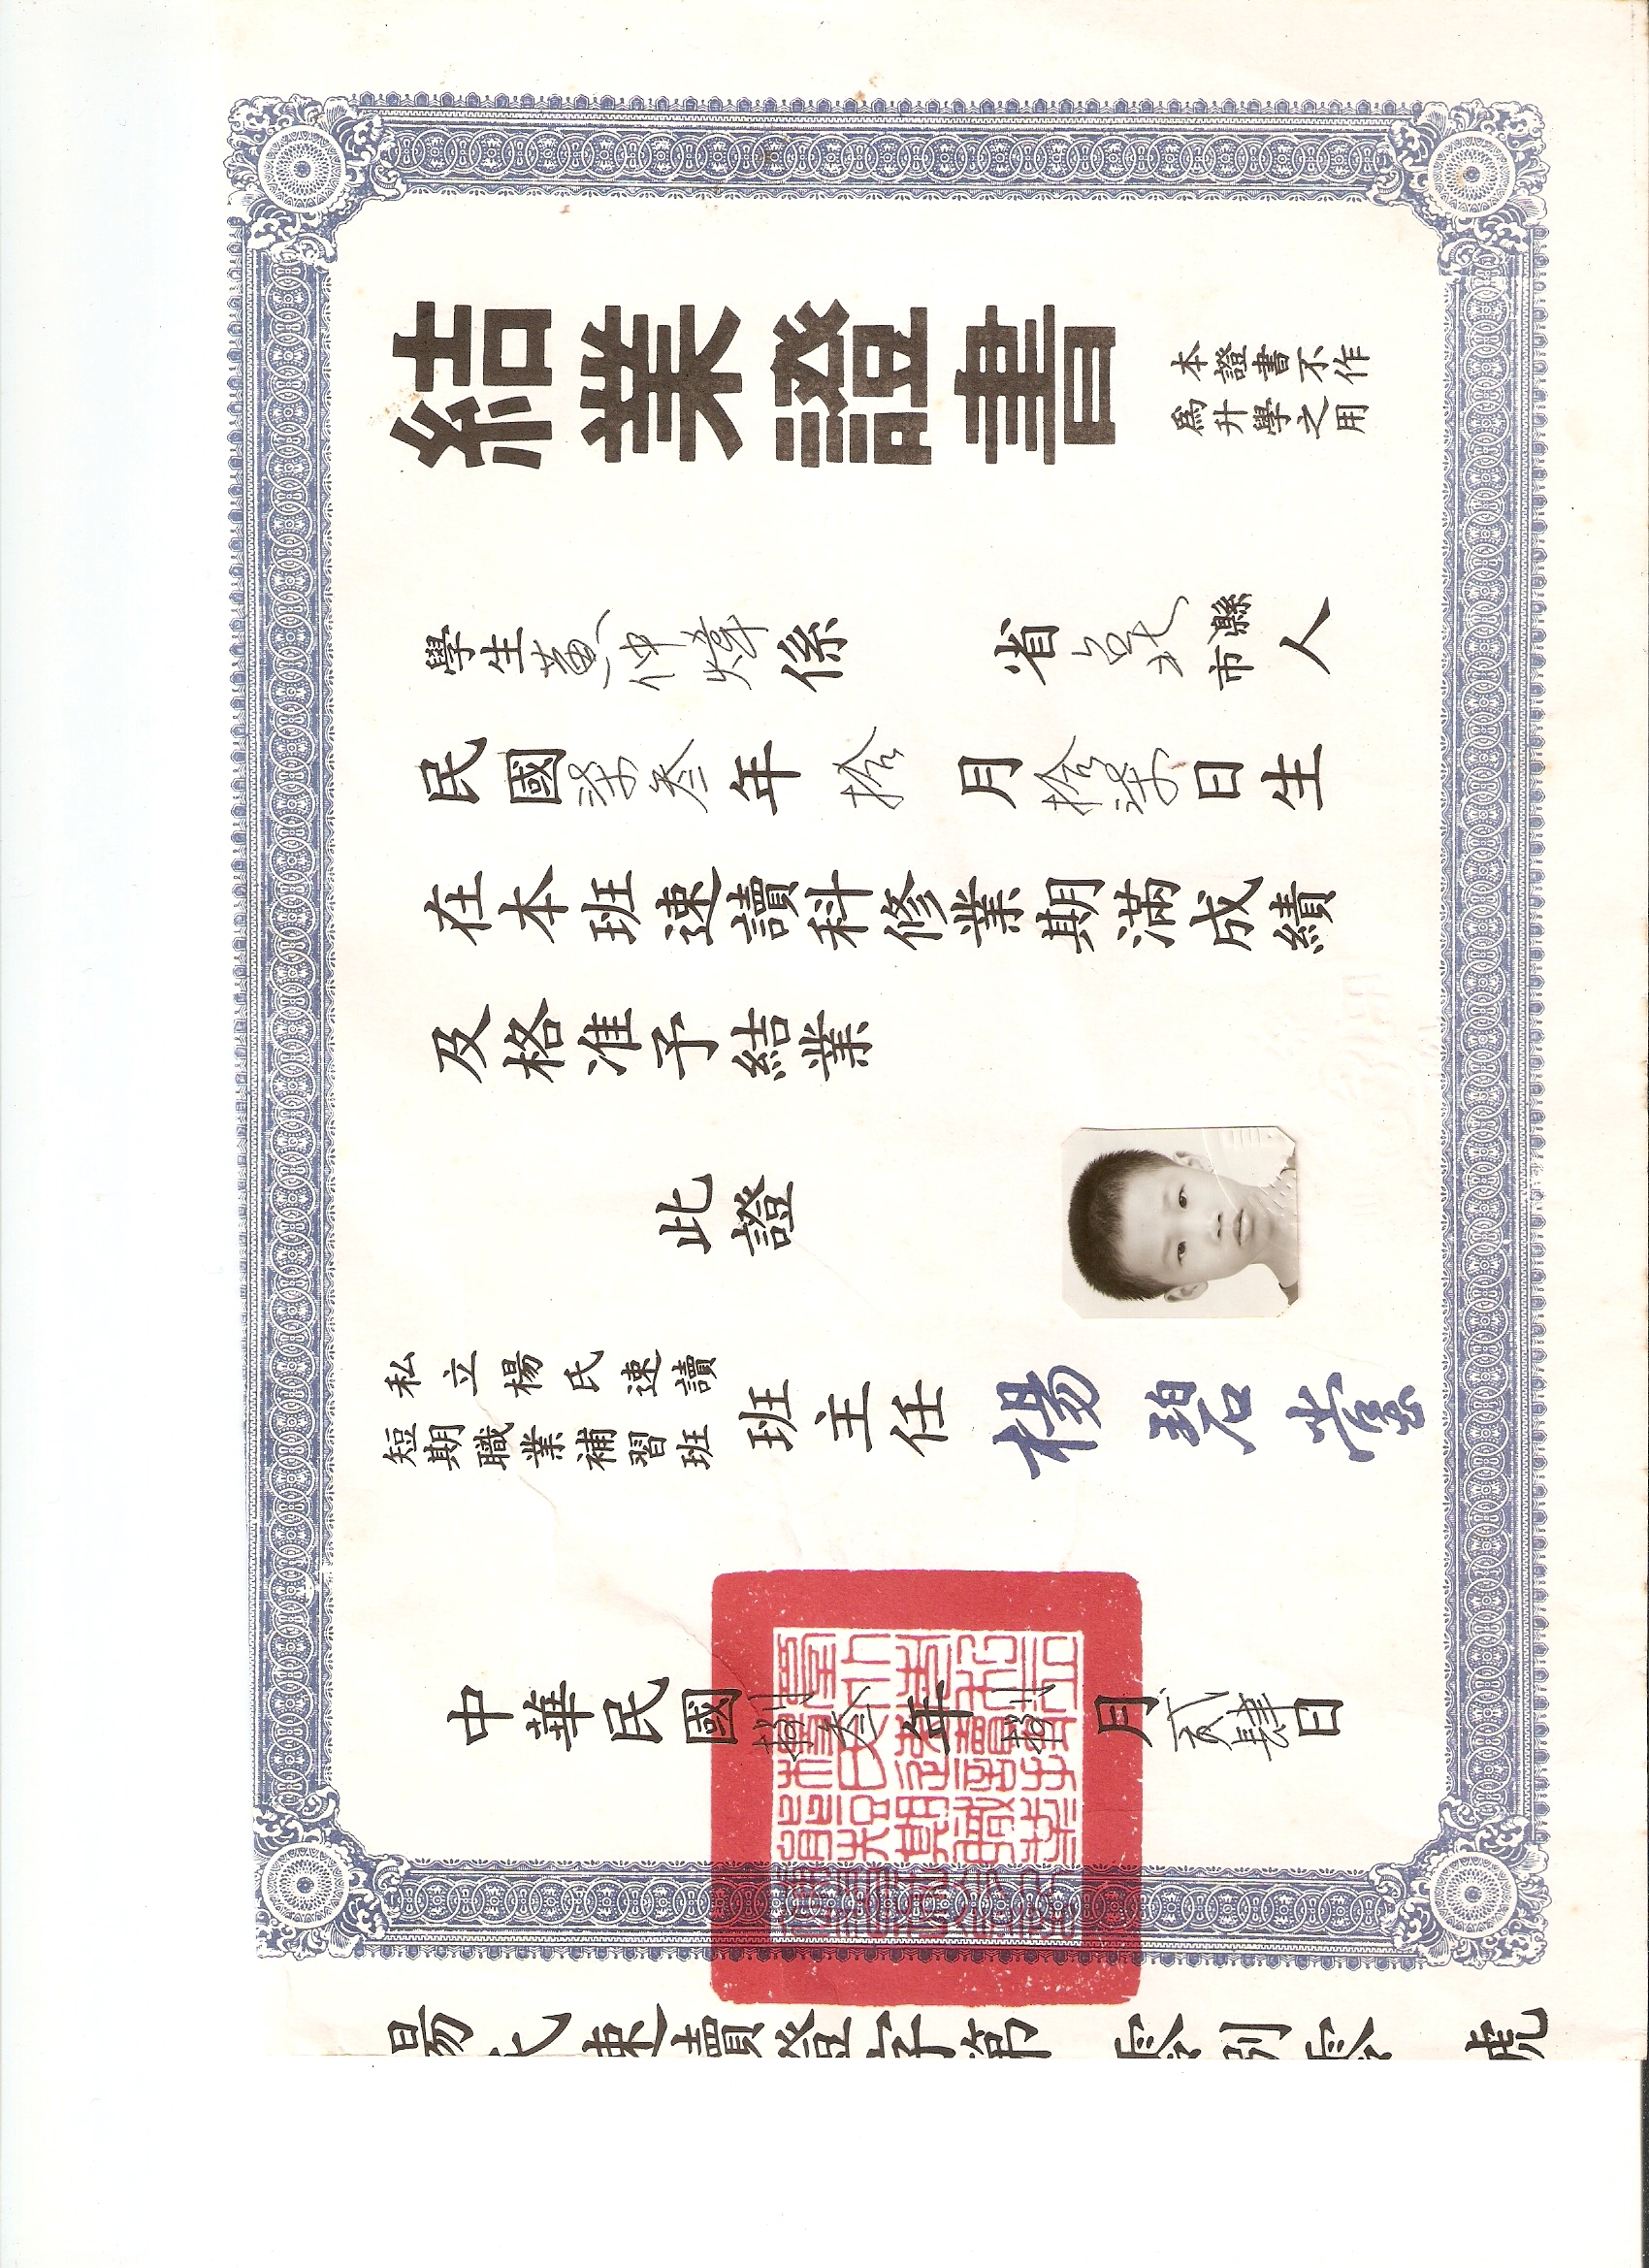 結業證書
本證書不作
爲升學之用
學生黃仲煒係 省台北縣市人
民國柒叁年拾月拾柒日生
在本班速讀科修業期滿成績
及格准予結業
此證
私立楊氏速讀
短期職業補習班
班主任 楊碧
中華民國捌叁年捌月貳肆日
楊氏速讀證字第 號